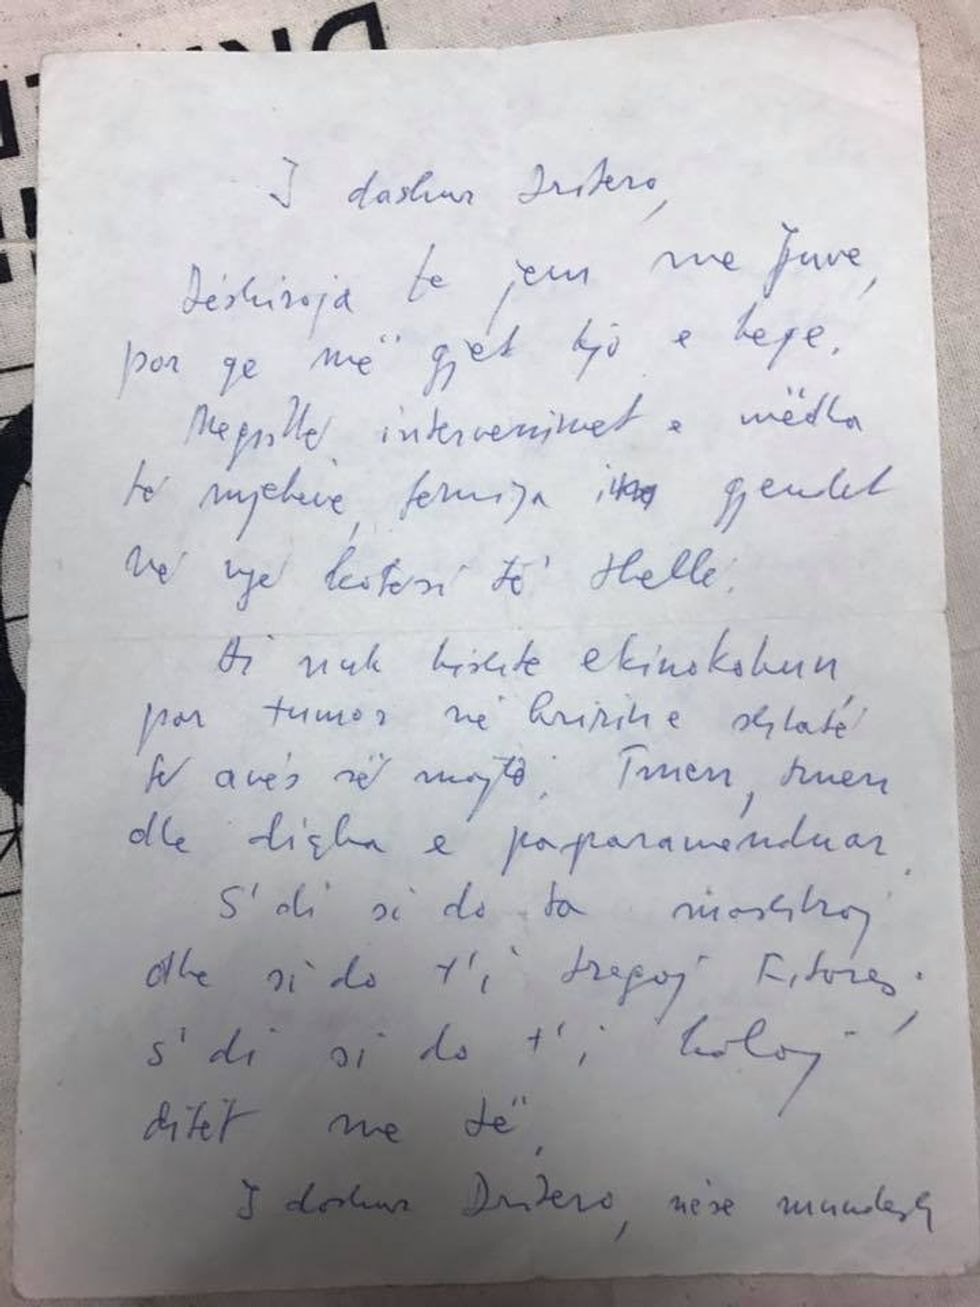 I dashur Dritero,
Dëshiroja te jem me Juve,
por qe më gjet kjo e keqe.
Megjithë intervenimet e mëdha
të mjekëve, fëmija gjendet
në një kotësi të thellë.
Ai nuk kishte ekinokokun,
por tumor në hririn e shpatë
të anës së majtë. Tmerr, tmerr
dhe digka e paparamenduar.
S'di si do ta
dhe si do t'i tregoj Fitores;
s'di si do t'i kaloj
ditët me të.
I dashur Dritero, nëse mundesh